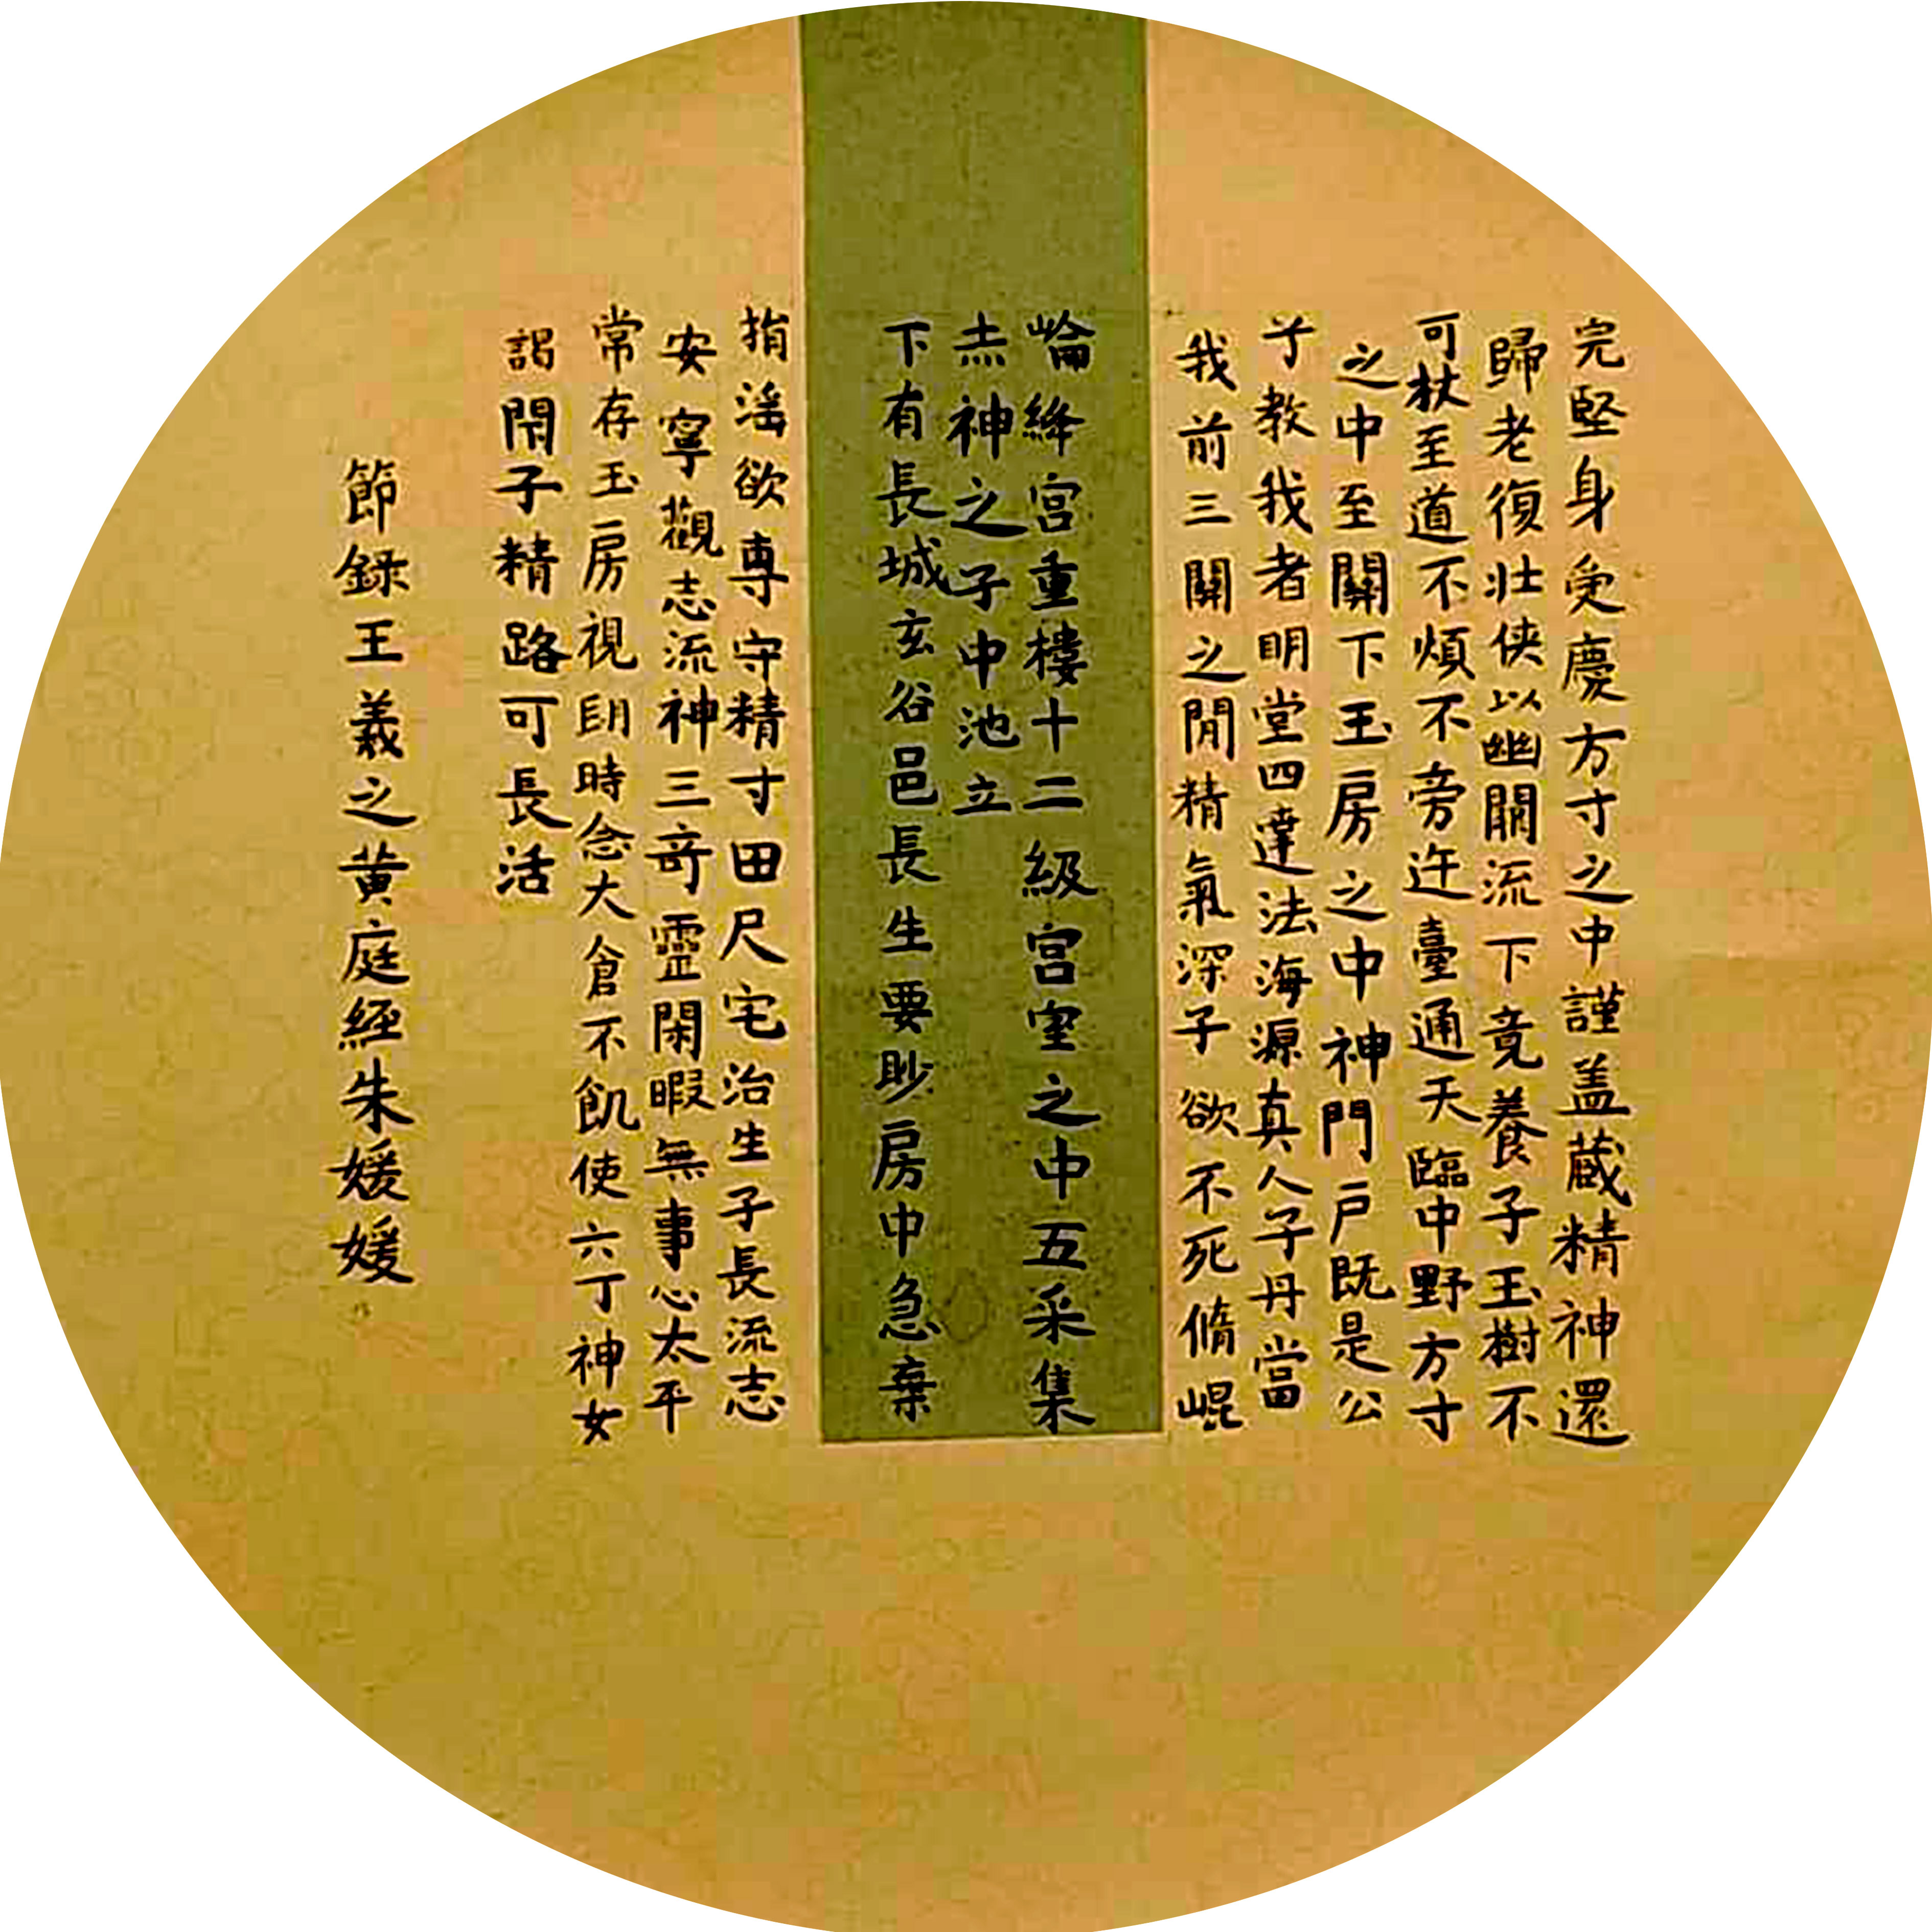 完堅身受慶方寸之中謹盖藏精神還
歸老復壯俠以幽關流下竟養子玉樹不
可杖至道不煩不旁迕臺通天臨中野方寸
之中至關下玉房之中神門戶既是公
子教我者明堂四達法海源真人子丹當
我前三關之閒精氣深子欲不死脩崐
崘絳宮重樓十二級宮室之中五采集
赤神之子中池立
下有長城玄谷邑長生要眇房中急棄
捐滛欲專守精寸田尺宅治生子長流志
安寧觀志流神三奇靈閑暇無事心太平
常存玉房視明時念大倉不飢使六丁神女
謁閇子精路可長活
節錄王羲之黃庭經朱媛媛